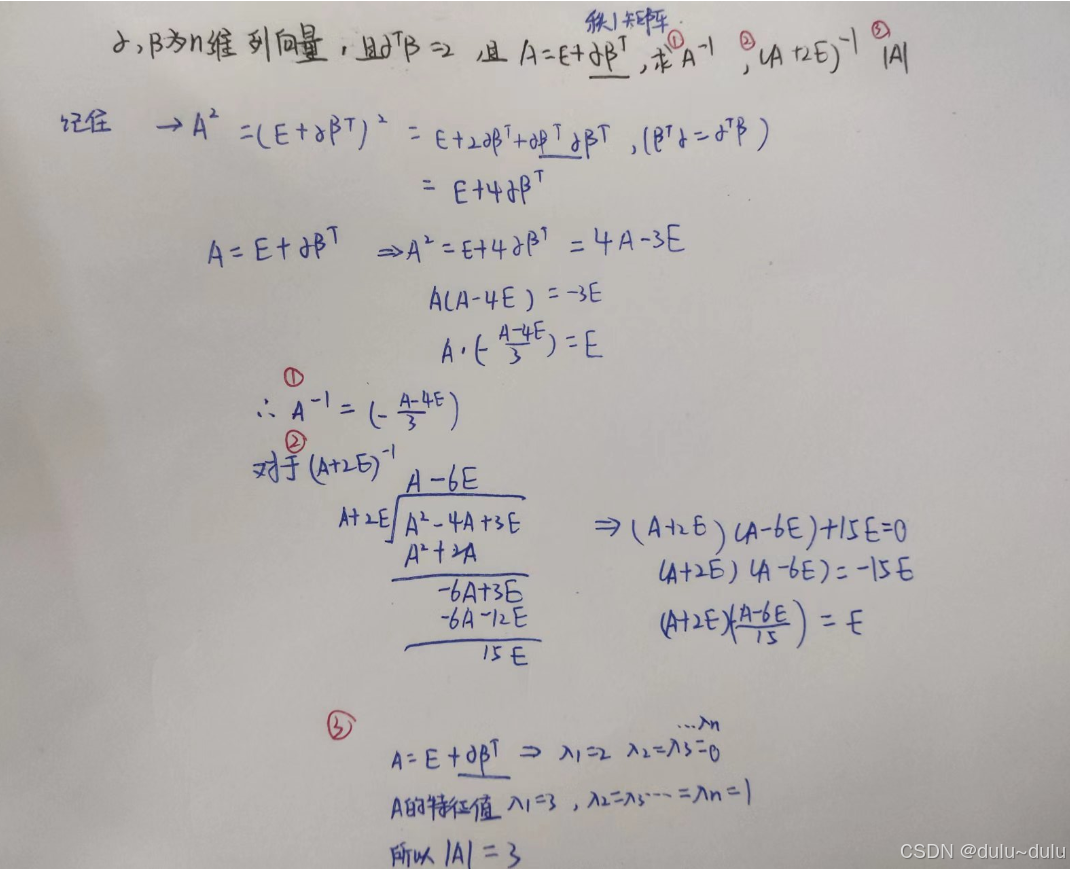 秩1矩阵
α,β为n维列向量,且α^Tβ=2 且 A=E+αβ^T,求①A^-1 ,②(A+2E)^-1 ③|A|
记住 →A^2 =(E+αβ^T)^2 = E+2αβ^T+αβ^Tαβ^T ,(β^Tα=α^Tβ)
= E+4αβ^T
A=E+αβ^T ⇒A^2=E+4αβ^T=4A-3E
A(A-4E)=-3E
A·(-\frac{A-4E}{3})=E
①
∴ A^-1=(-\frac{A-4E}{3})
②
对于(A+2E)^-1
A-6E
A+2E A^2-4A+3E
A^2+2A
-6A+3E
-6A-12E
15E
⇒(A+2E)(A-6E)+15E=0
(A+2E)(A-6E)=-15E
(A+2E)(-\frac{A-6E}{15})=E
③
A=E+αβ^T ⇒ λ1=2 λ2=λ3=…λn=0
A的特征值 λ1=3 ,λ2=λ3…=λn=1
所以|A|=3
CSDN @dulu~dulu